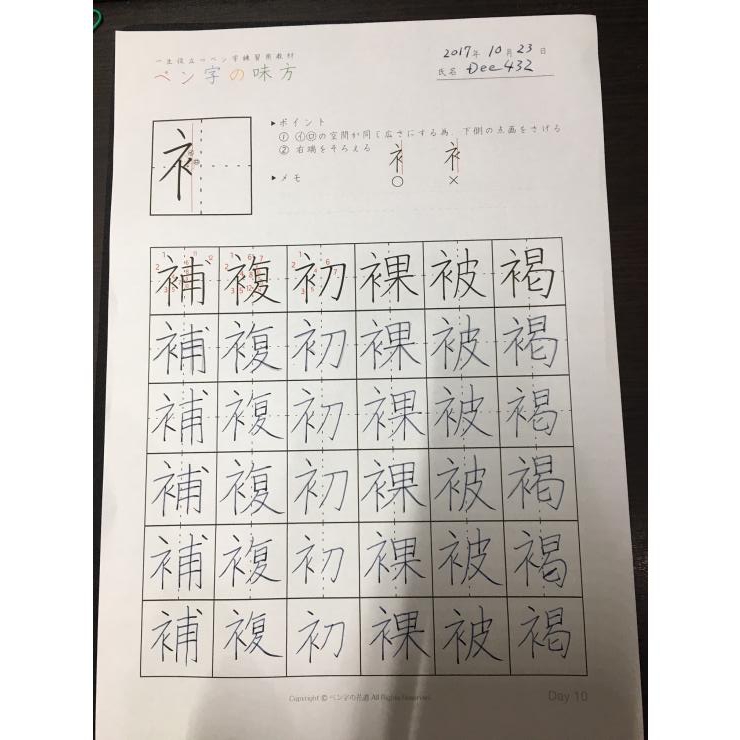 一生役立つペン字練習用教材
ペン字の味方
2017年 10月 23日
氏名 Dee432
衤
▶ポイント
① ㋑㋺の空間が同じ広さにする為、下側の点画をさげる
② 右端をそろえる
衤 衤
○ ×
▶メモ
補 複 初 裸 被 褐
補 複 初 裸 被 褐
補 複 初 裸 被 褐
補 複 初 裸 被 褐
補 複 初 裸 被 褐
補 複 初 裸 被 褐
Copyright © ペン字の花道 All Rights Reserved.
Day 10